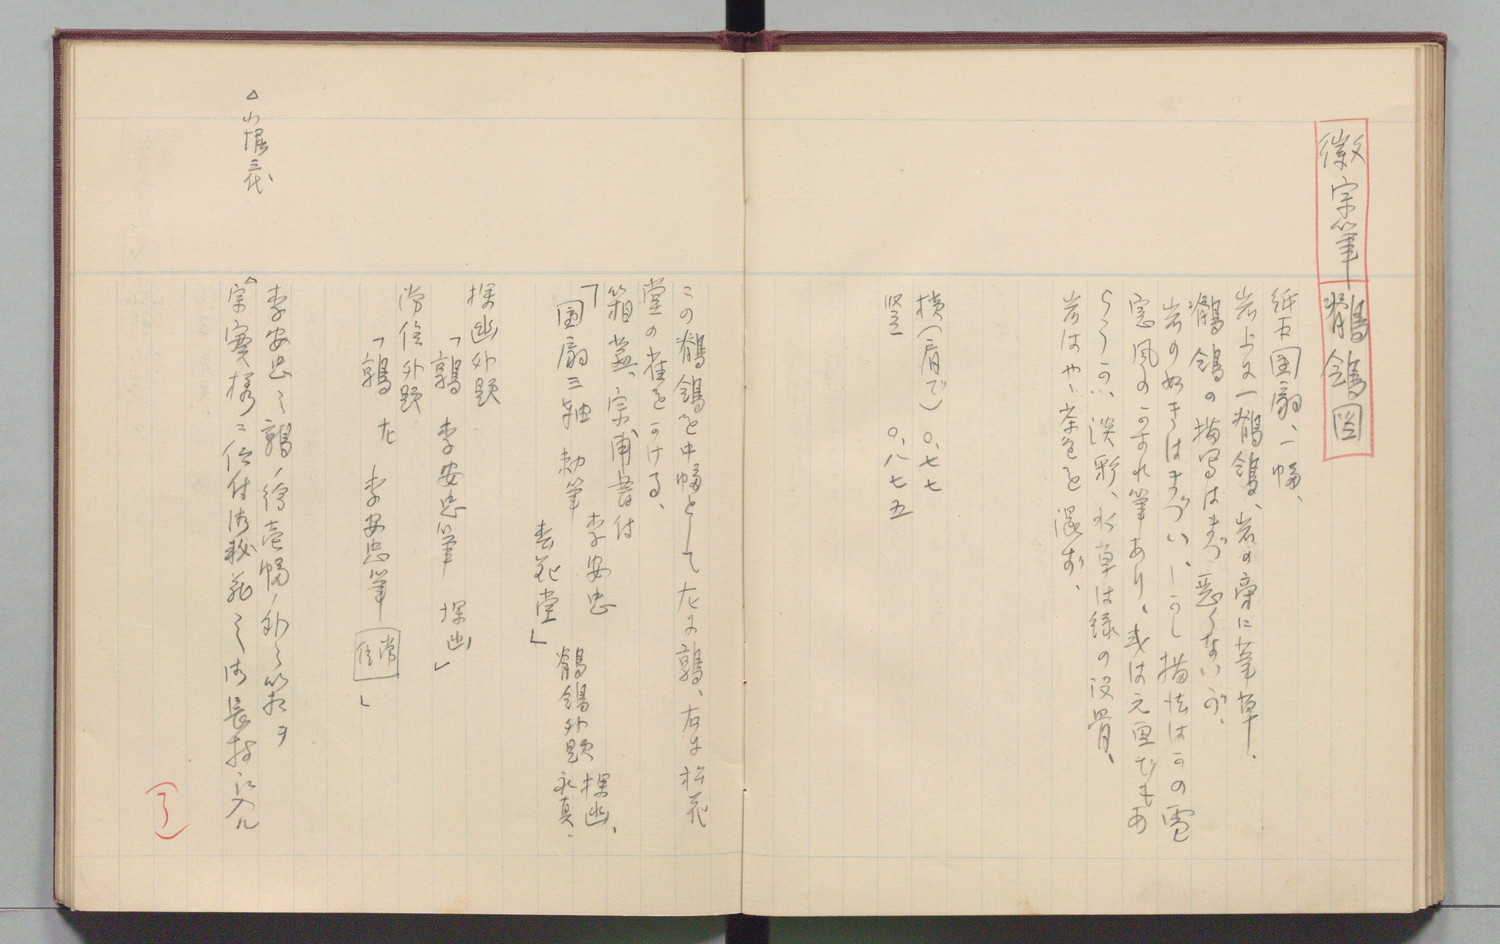 徽宗筆 鶺鴒図
紙本団扇、一幅、
岩上に一鶺鴒、岩の旁に葦草、
鶺鴒の描写はまづ悪くないが、
岩の如きはまづい、しかし描法はかの雪
窓風のかすれ筆あり、或は元画でもあ
らうか、淡彩、水草は緑の没骨、
岩はやゝ茶色を混ず、
横(肩で)〇、七七
竪 〇、八七五
この鶺鴒を中幅として左に鶉、右に松花
堂の雀をかける、
箱蓋、宗甫書付
「 李安忠 鶺鴒外題 探幽、
団扇三軸 勅筆 永真、
松花堂」
探幽外題
「鶉 李安忠筆 探幽」
常信外題
「鶉 左 李安忠筆 常信」
李安忠之鶉ノ絵壱幅ノ外之箱ヲ
△宗実様ニ被仰付御秘蔵之御長持江入ル
△小堀三代